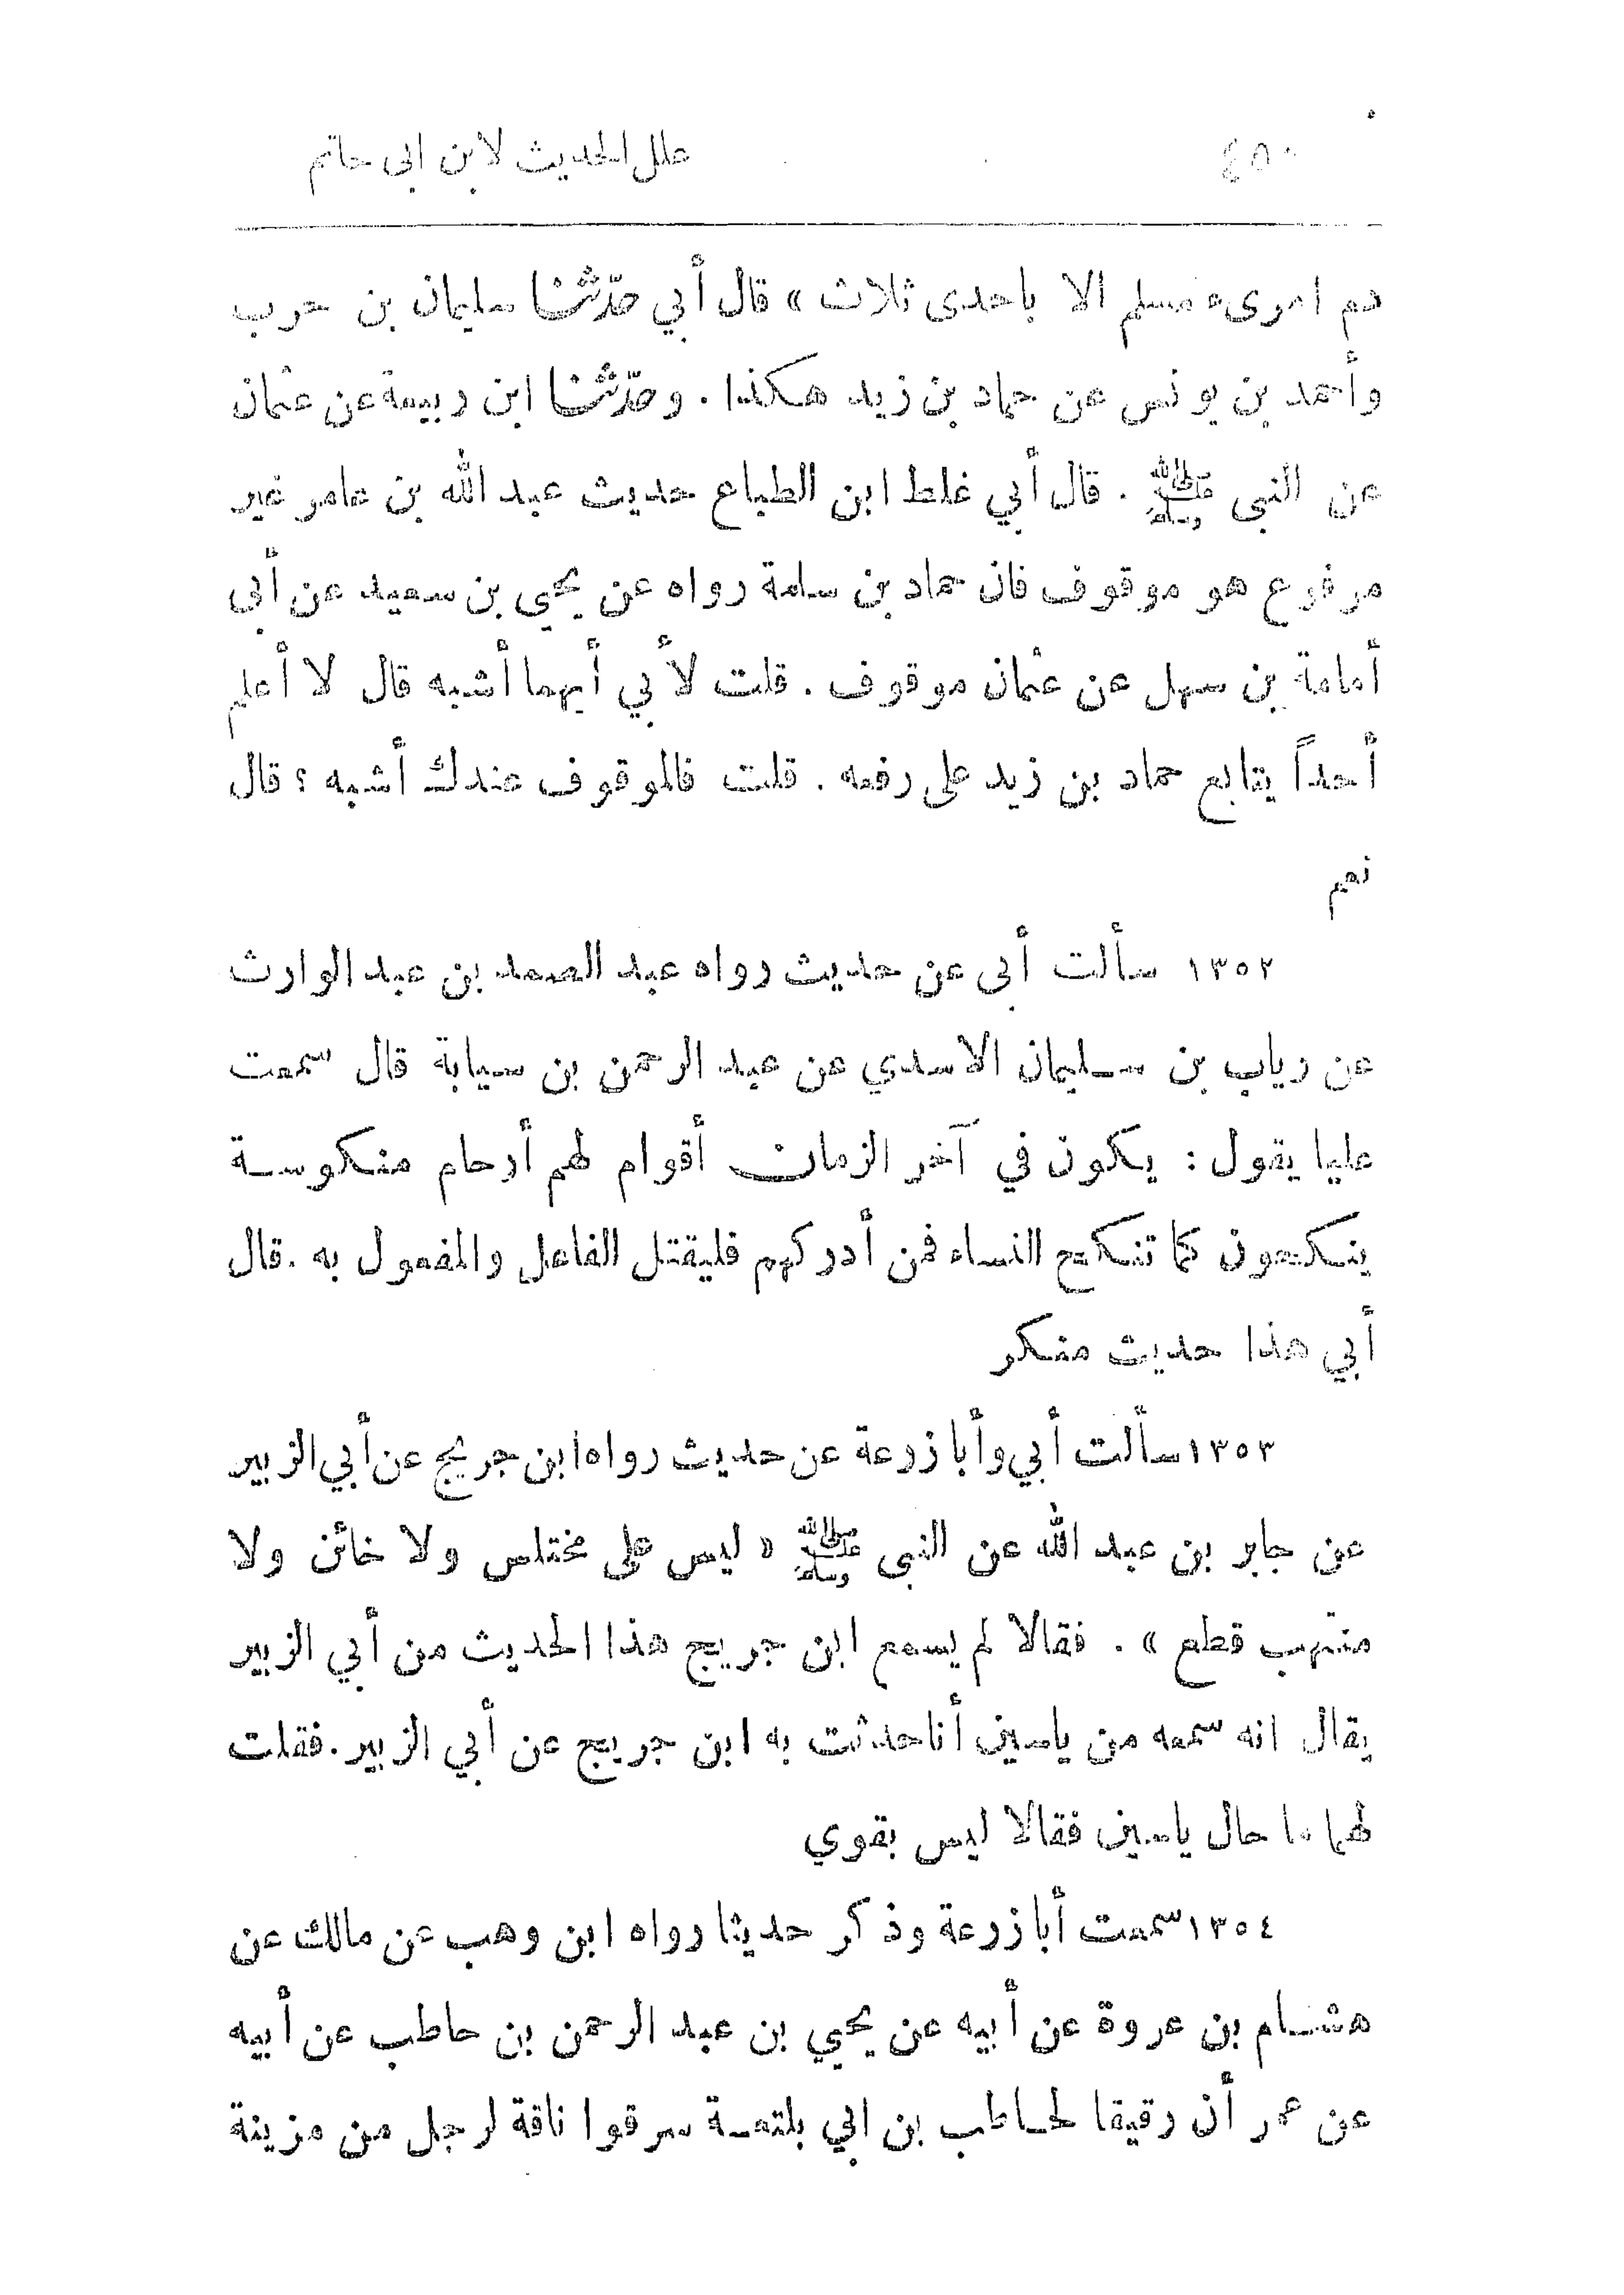 ٤٥٠ علل الحديث لابن ابى حاتم
دم امرىء مسلم الا باحدى ثلاث » قال أبي حدّثنا سليمان بن حرب
وأحمد بن يونس عن حماد بن زيد هكذا . وحدّثنا ابن ربيعة عن عثمان
عن النبى ﷺ . قال أبي غلط ابن الطباع حديث عبد الله بن عامر غير
مرفوع هو موقوف فان حماد بن سلمة رواه عن يحيى بن سعيد عن أبى
أمامة بن سهل عن عثمان موقوف . قلت لأبي أيهما أشبه قال لا أعلم
أحداً يتابع حماد بن زيد على رفعه . قلت فالموقوف عندك أشبه ؟ قال
نعم
١٣٥٢ سألت أبى عن حديث رواه عبد الصمد بن عبد الوارث
عن رياب بن سليمان الاسدي عن عبد الرحمن بن سيابة قال سمعت
عليا يقول : يكون في آخر الزمان أقوام لهم أرحام منكوسة
ينكحون كما تنكح النساء فمن أدركهم فليقتل الفاعل والمفعول به . قال
أبي هذا حديث منكر
١٣٥٣ سألت أبي وأبا زرعة عن حديث رواه ابن جريج عن أبي الزبير
عن جابر بن عبد الله عن النبى ﷺ « ليس على مختلس ولا خائن ولا
منتهب قطع » . فقالا لم يسمع ابن جريج هذا الحديث من أبي الزبير
يقال انه سمعه من ياسين أنا حدثت به ابن جريج عن أبي الزبير . فقلت
لهما ما حال ياسين فقالا ليس بقوي
١٣٥٤ سمعت أبا زرعة وذكر حديثا رواه ابن وهب عن مالك عن
هشام بن عروة عن أبيه عن يحيي بن عبد الرحمن بن حاطب عن أبيه
عن عمر أن رقيقا لحاطب بن ابي بلتعة سرقوا ناقة لرجل من مزينة